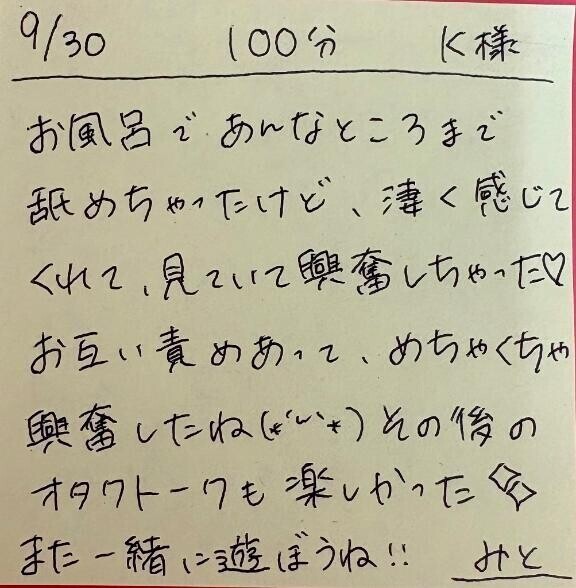 9/30 100分 K様
お風呂であんなところまで
舐めちゃったけど、凄く感じて
くれて、見ていて興奮しちゃった♡
お互い責めあって、めちゃくちゃ
興奮したね(*´˘`*)その後の
オタクトークも楽しかった
また一緒に遊ぼうね!! みと